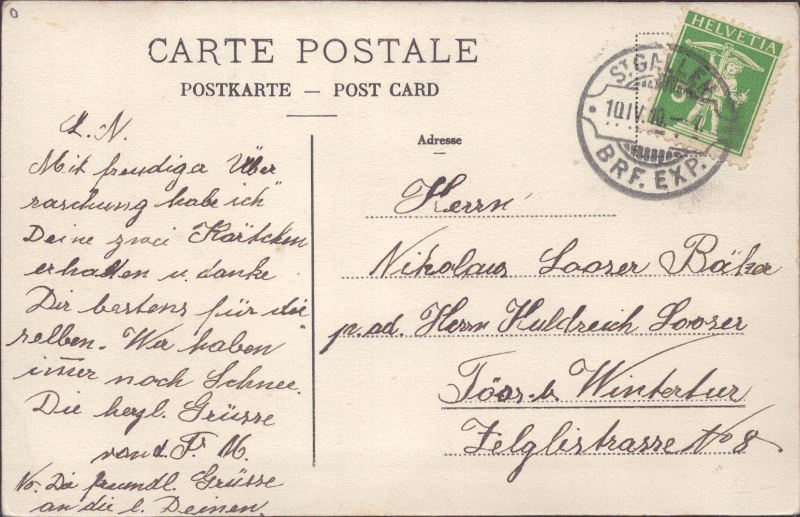 CARTE POSTALE
POSTKARTE — POST CARD
L. N.
Mit freudiger Über
raschung habe ich
Deine zwei Kärtchen
erhalten u. danke
Dir bestens für die
selben. Wir haben
immer noch Schnee.
Die herzl. Grüsse
von d. Fr. M.
No. Die freundl. Grüsse
an die l. Deinen.
HELVETIA
5
ST GALLEN
10.IV.10.
BRF. EXP.
Adresse
Herrn
Nikolaus Looser Bäker
p. ad. Herrn Huldreich Looser
Töss b. Wintertur
Zelglistrasse No 8